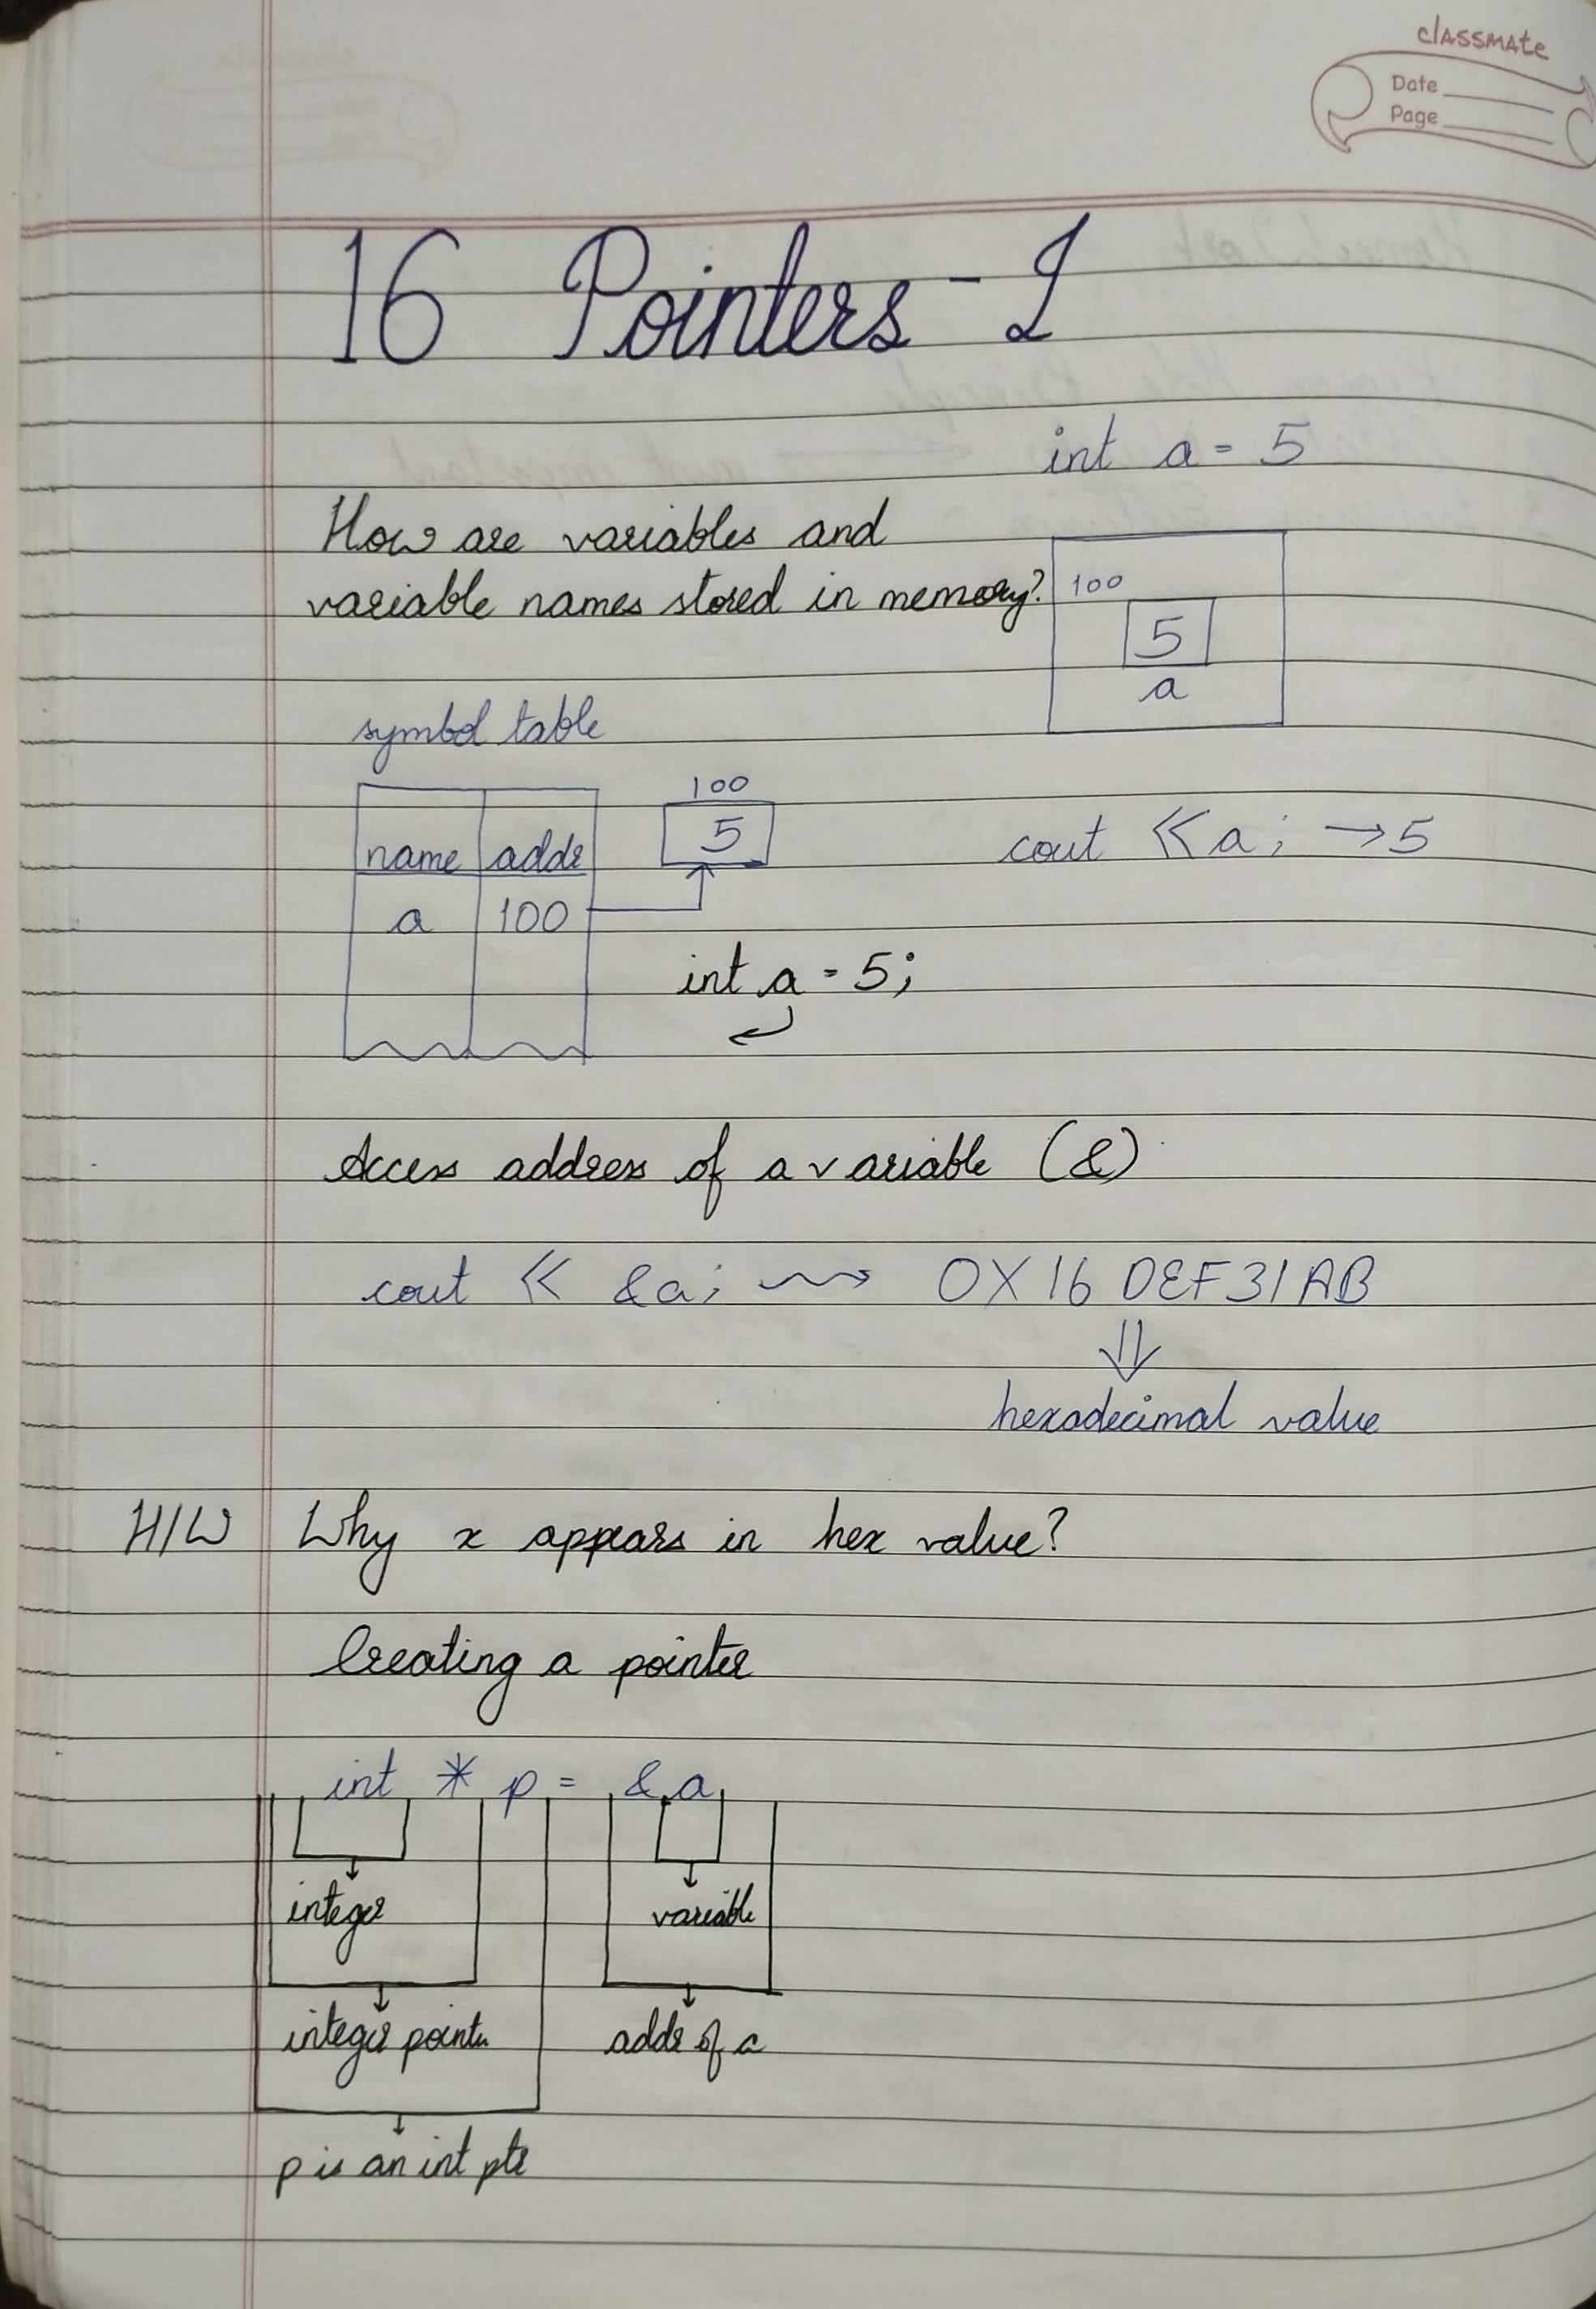 classmate
Date
Page
16 Pointers - I
int a = 5
How are variables and
variable names stored in memory?
100
5
a
symbol table
name addr
a 100
100
5
cout << a; → 5
int a = 5;
Access address of a variable (&)
cout << &a; ⇝ 0X16DEF31AB
⇓
hexadecimal value
H/W Why x appears in hex value?
Creating a pointer
int * p = &a
integer variable
integer pointer addr of a
p is an int ptr